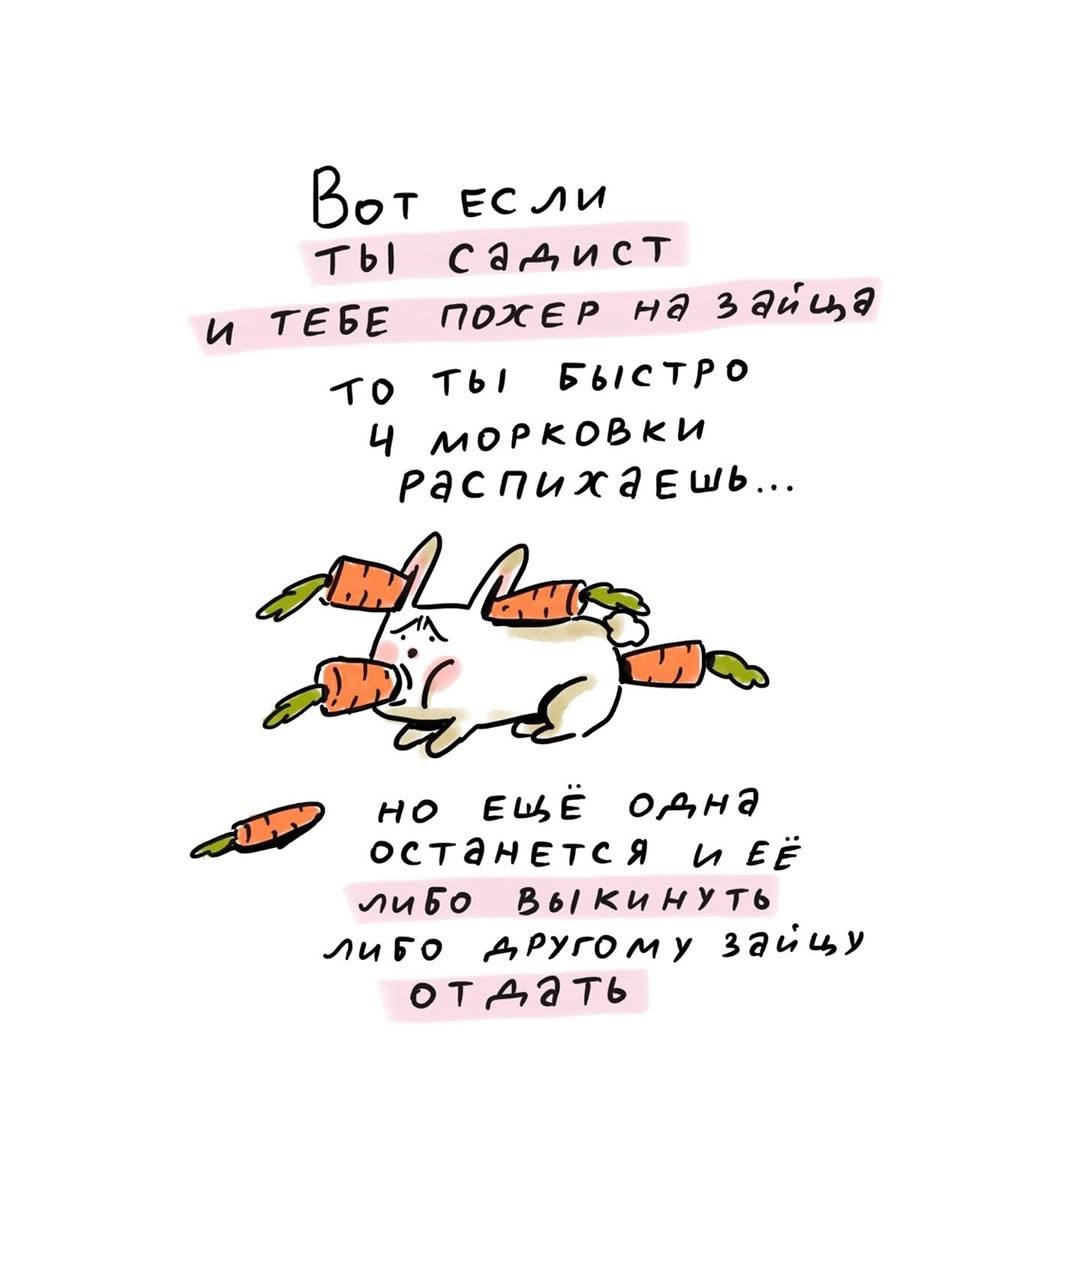 Вот если
ты садист
и тебе похер на зайца
то ты быстро
4 морковки
распихаешь...
но ещё одна
останется и её
либо выкинуть
либо другому зайцу
отдать